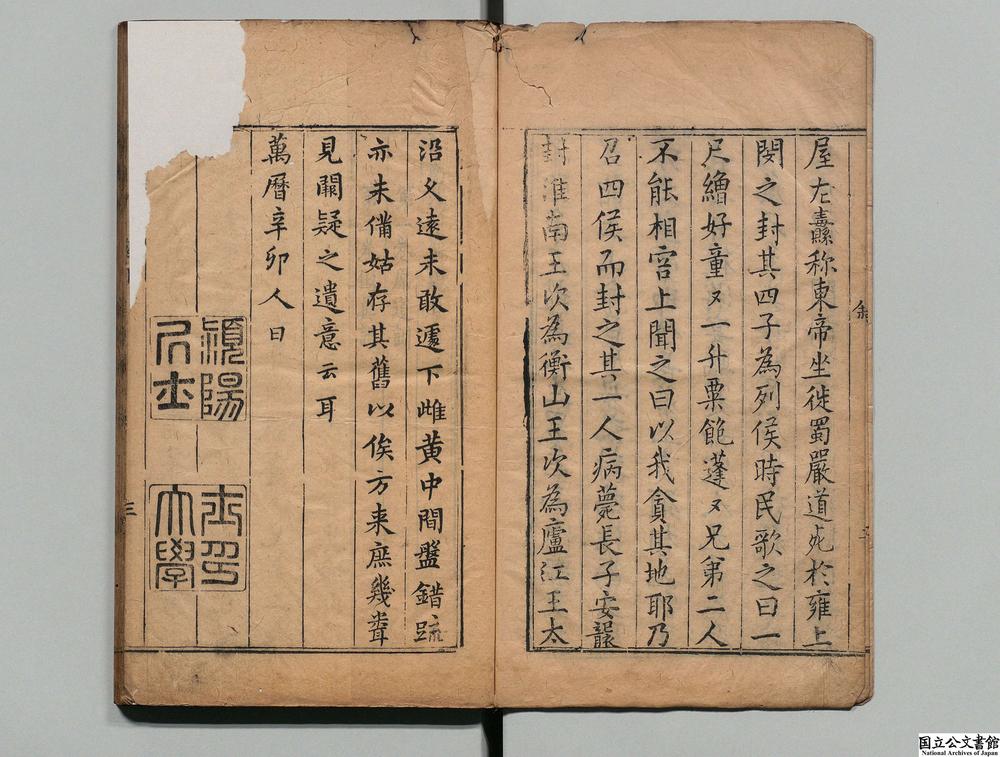 屋左纛称東帝坐徙蜀嚴道死於雍上
閔之封其四子為列侯時民歌之曰一
尺繒好童〻一升粟飽蓬〻兄弟二人
不能相容上聞之曰以我貪其地耶乃
召四侯而封之其一人病薨長子安襲
封淮南王次為衡山王次為廬江王太
沿乆遠未敢遽下雌黄中間盤錯疏
亦未備姑存其舊以俟方来庶幾
見闕疑之遺意云耳
萬曆辛卯人日
三
国立公文書館
National Archives of Japan